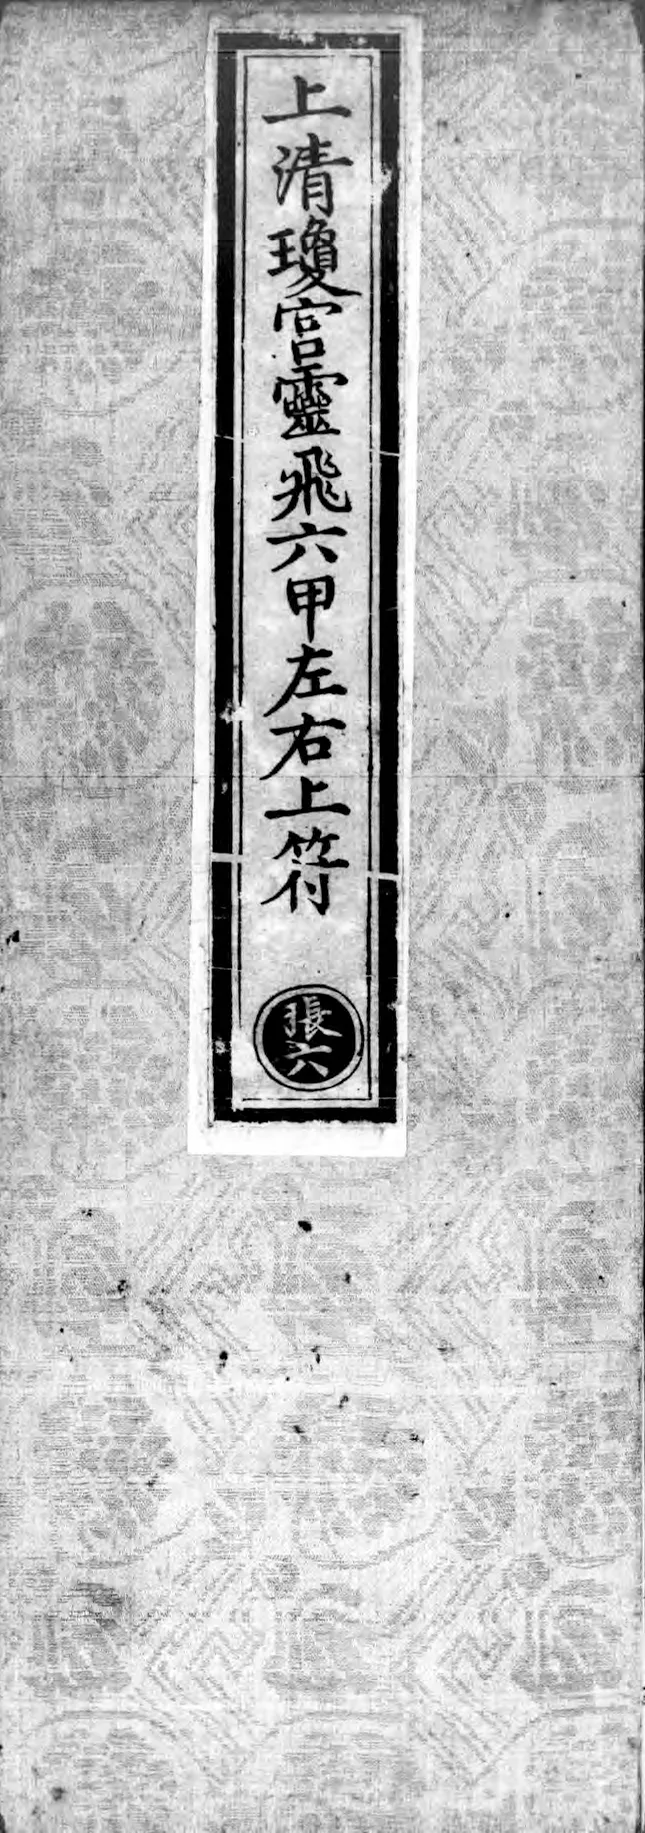 上清瓊宮靈飛六甲左右上符
張六